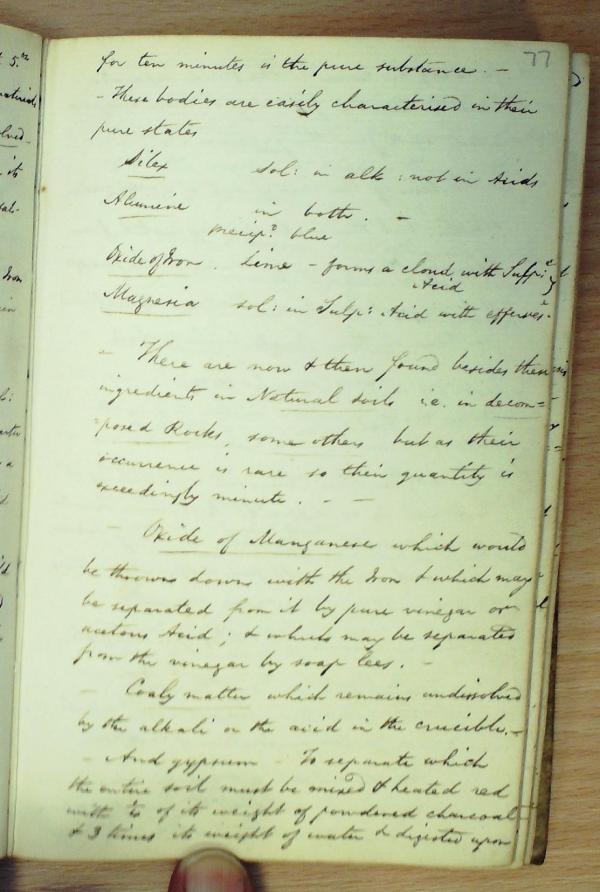 77
for ten minutes is the pure substance. —
– These bodies are easily characterised in their
pure states
Silex sol: in alk: not in Acids
Alumine in both. –
precip.d blue
Oxide of Iron. Lime – forms a cloud with Sulp:c
Acid
Magnesia sol: in Sulp: Acid with efferves:
– There are now & then found besides these
ingredients in Natural soils i.e. in decom=
=posed Rocks, some others but as their
occurrence is rare so their quantity is
exceedingly minute. – –
– Oxide of Manganese which would
be thrown down with the Iron & which may
be separated from it by pure vinegar or
acetous Acid; & which may be separated
from the vinegar by soap lees. –
– Coaly matter which remains undissolved
by the alkali or the acid in the crucible. –
– And gypsum – To separate which
the entire soil must be mixed & heated red
with of its weight of powdered charcoal
& 3 times its weight of water & digested upon